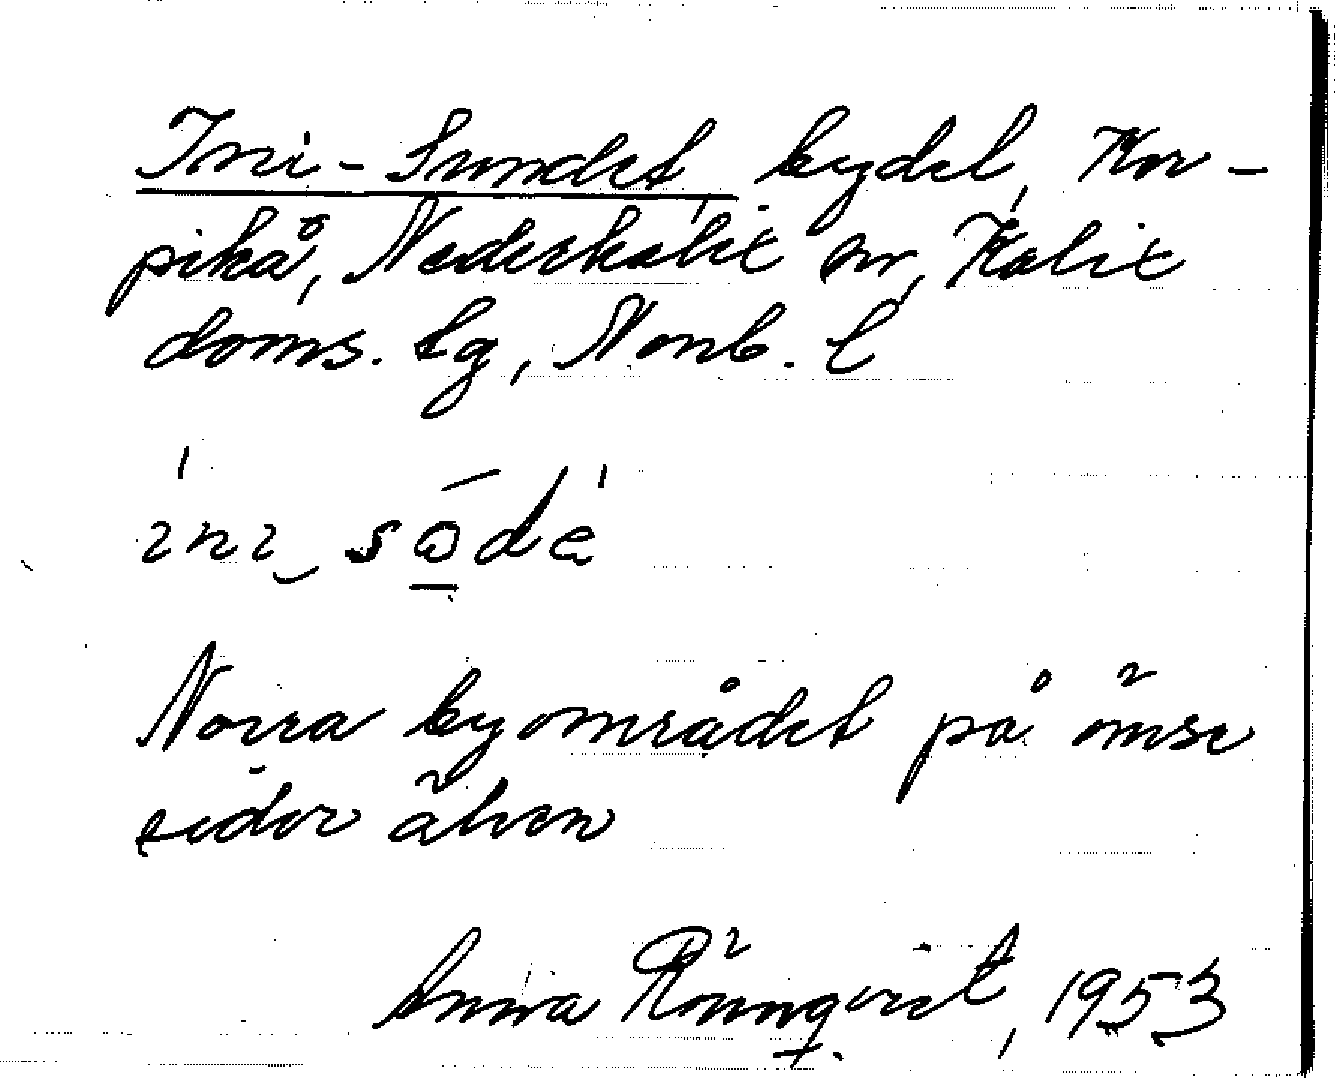 Ini-Sundet, bydel, Kor-
pikå, Nederkalix sn, Kalix
doms. tg, Norrb. l
ini södé
Norra byområdet på ömse
sidor älven
Anna Rönnqvist, 1953